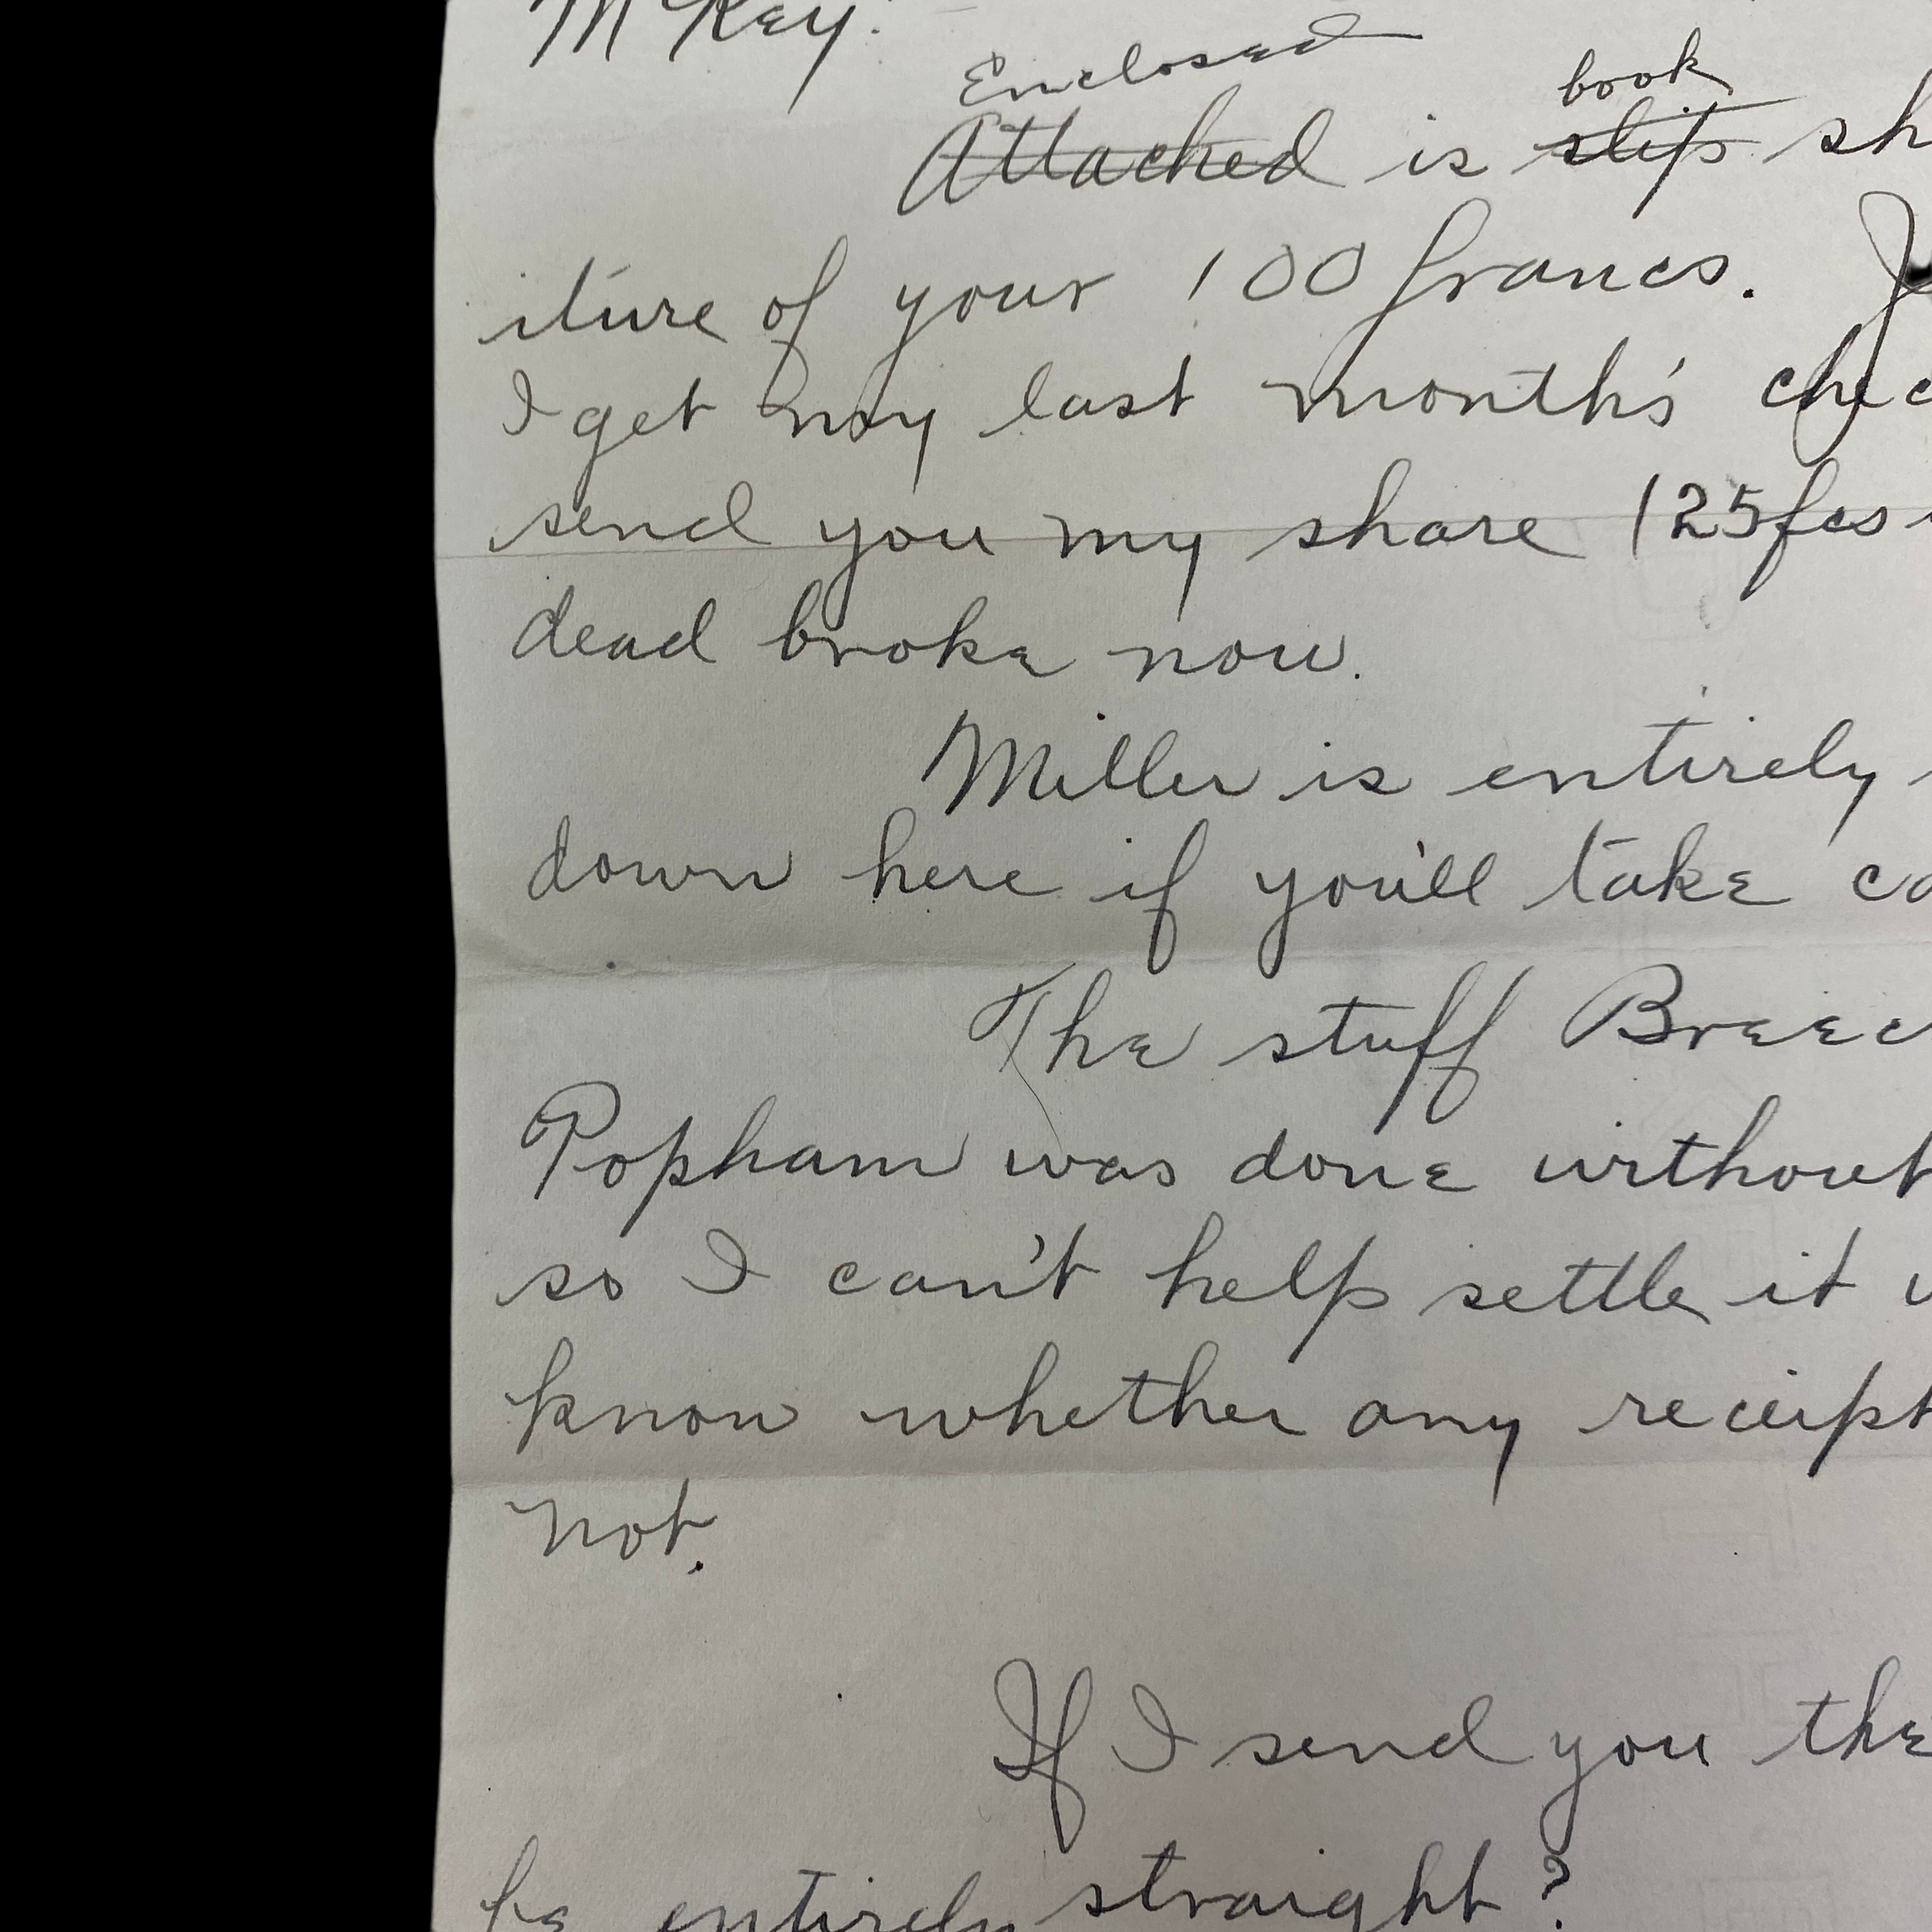 McKey:
Enclosed book
Attached is slip sh
iture of your 100 francs. J
I get my last month's chec
send you my share 125fcs
dead broke now.
Miller is entirely
down here if you'll take ca
The stuff Breec
Popham was done without
so I can't help settle it
know whether any receipt
not.
If I send you the
be entirely straight?